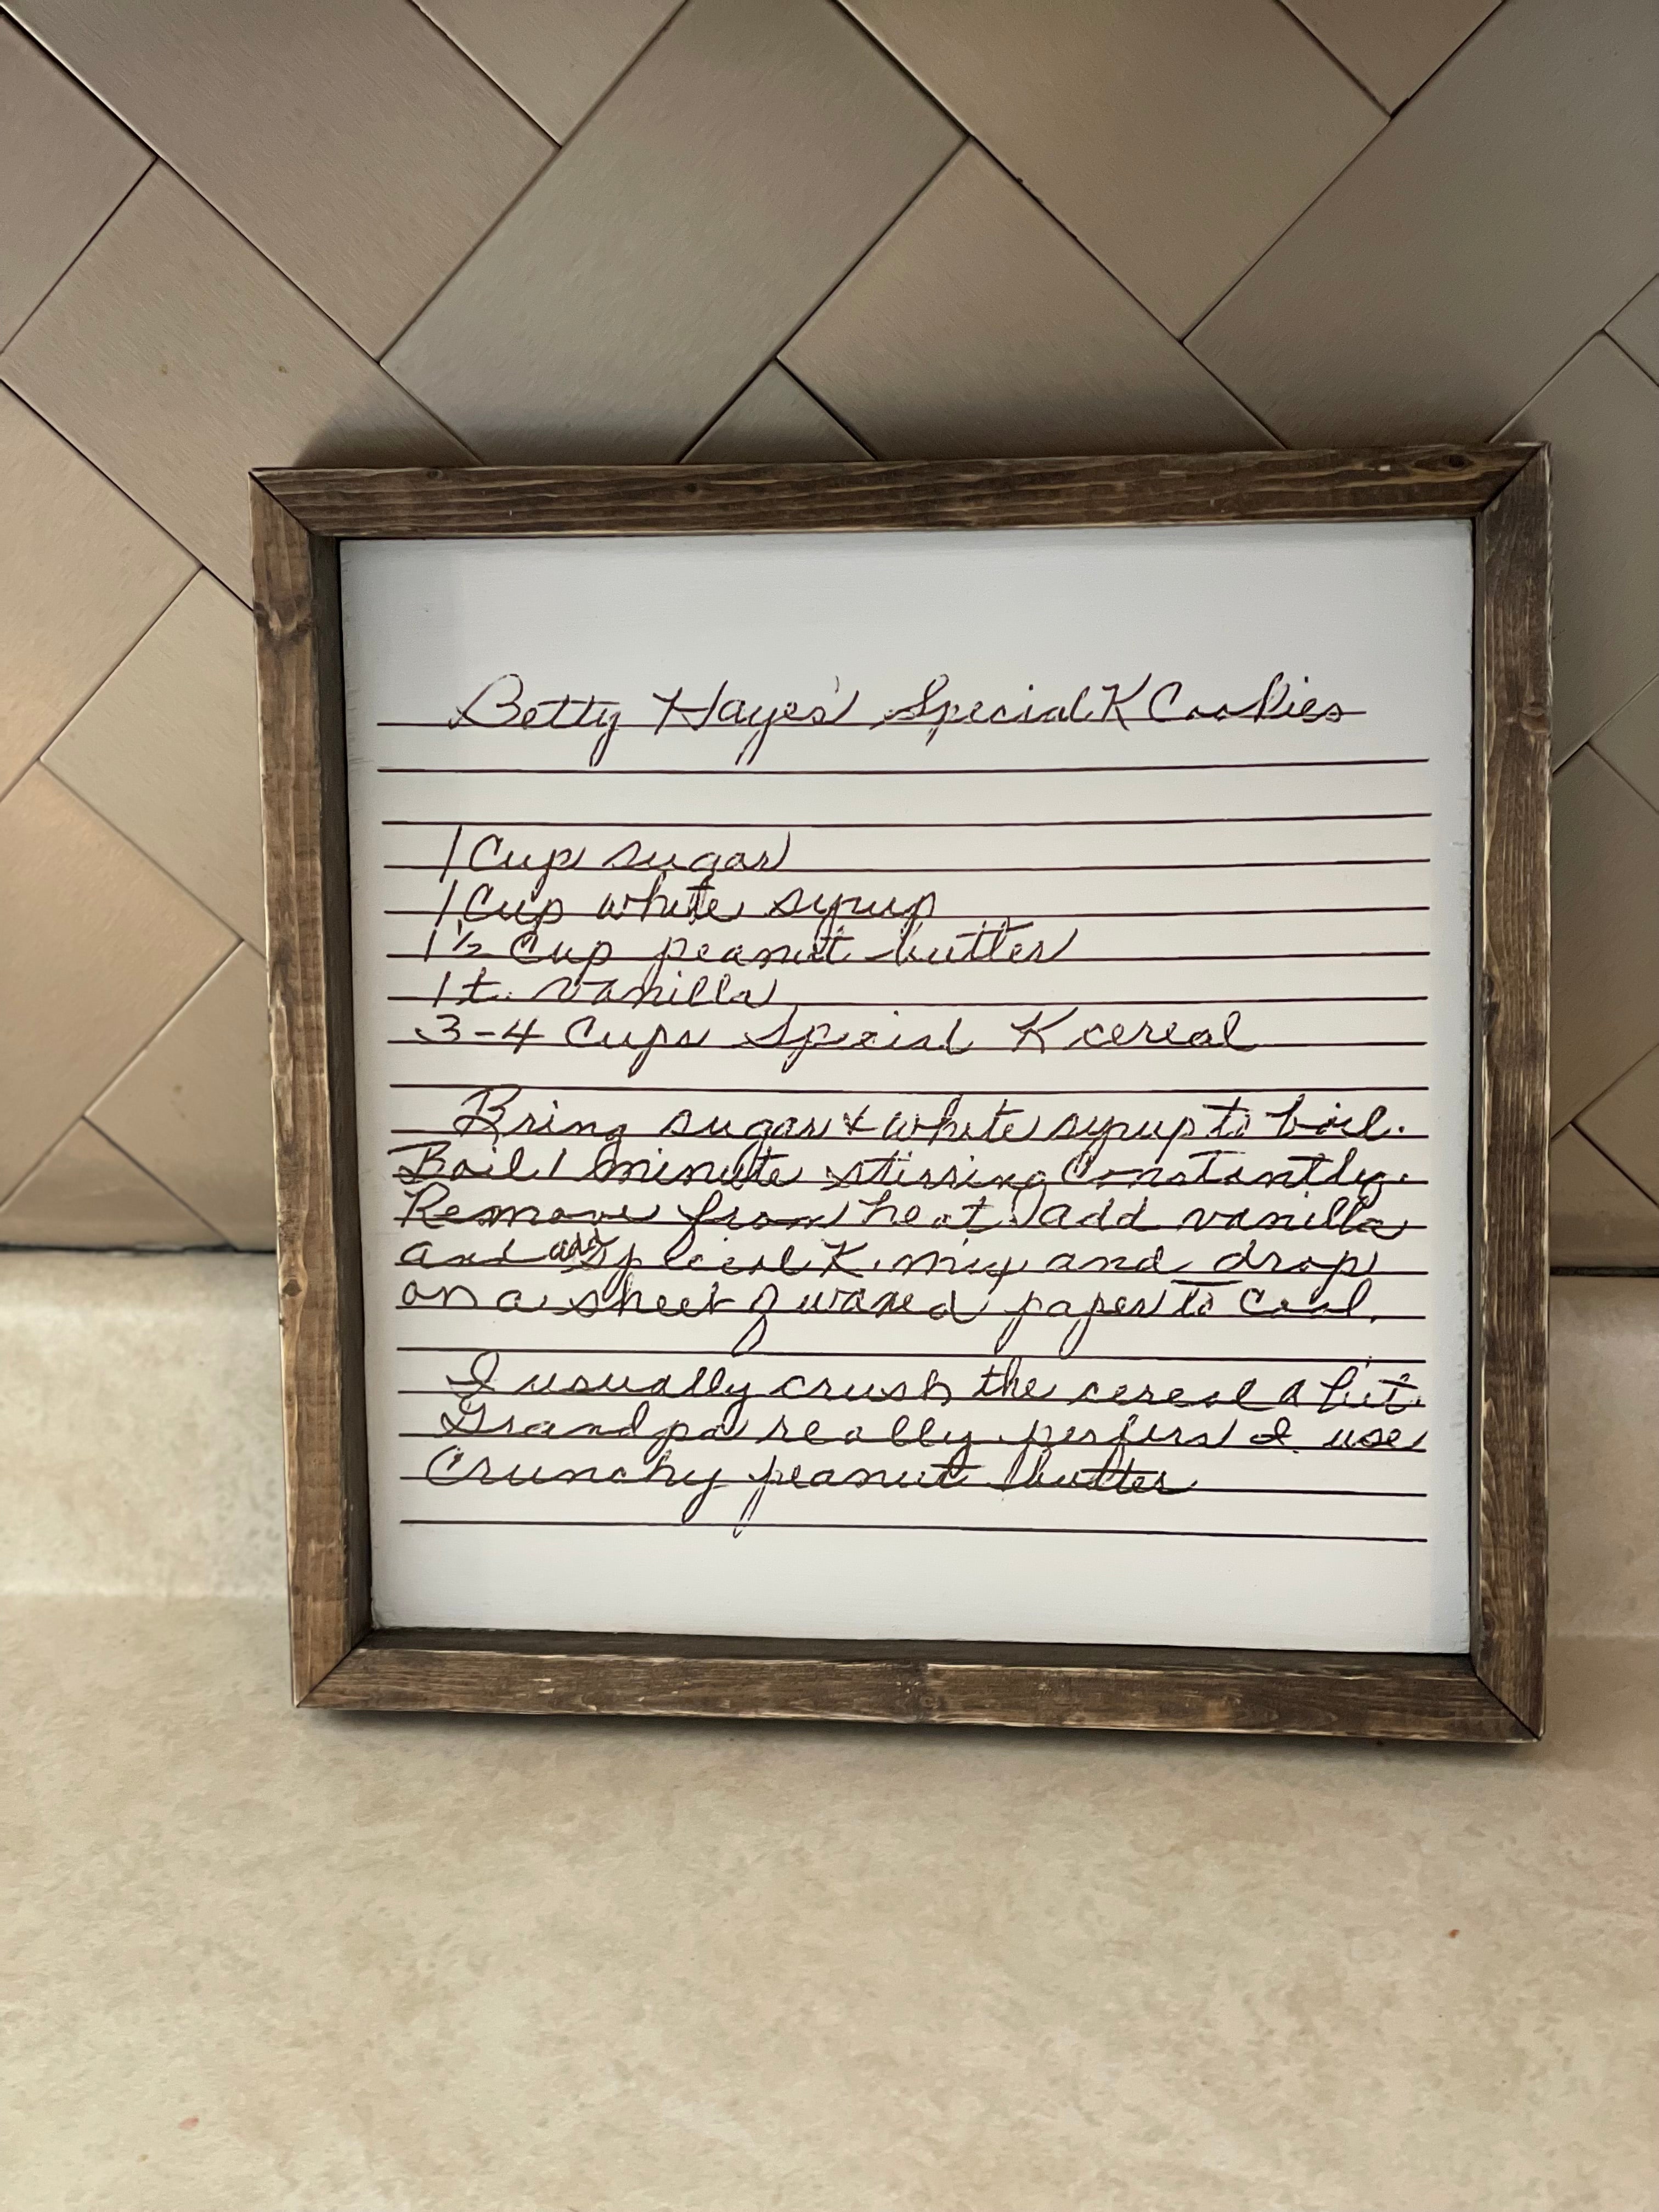 Betty Hayes' Special K Cookies
1 Cup sugar
1 Cup white syrup
1 ½ Cup peanut butter
1 t. vanilla
3-4 Cups Special K cereal
Bring sugar & white syrup to boil.
Boil 1 minute stirring Constantly.
Remove from heat. add vanilla
and add Special K. mix and drop
on a sheet of waxed paper to cool.
I usually crush the cereal a bit.
Grandpa really perfers I use
Crunchy peanut butter